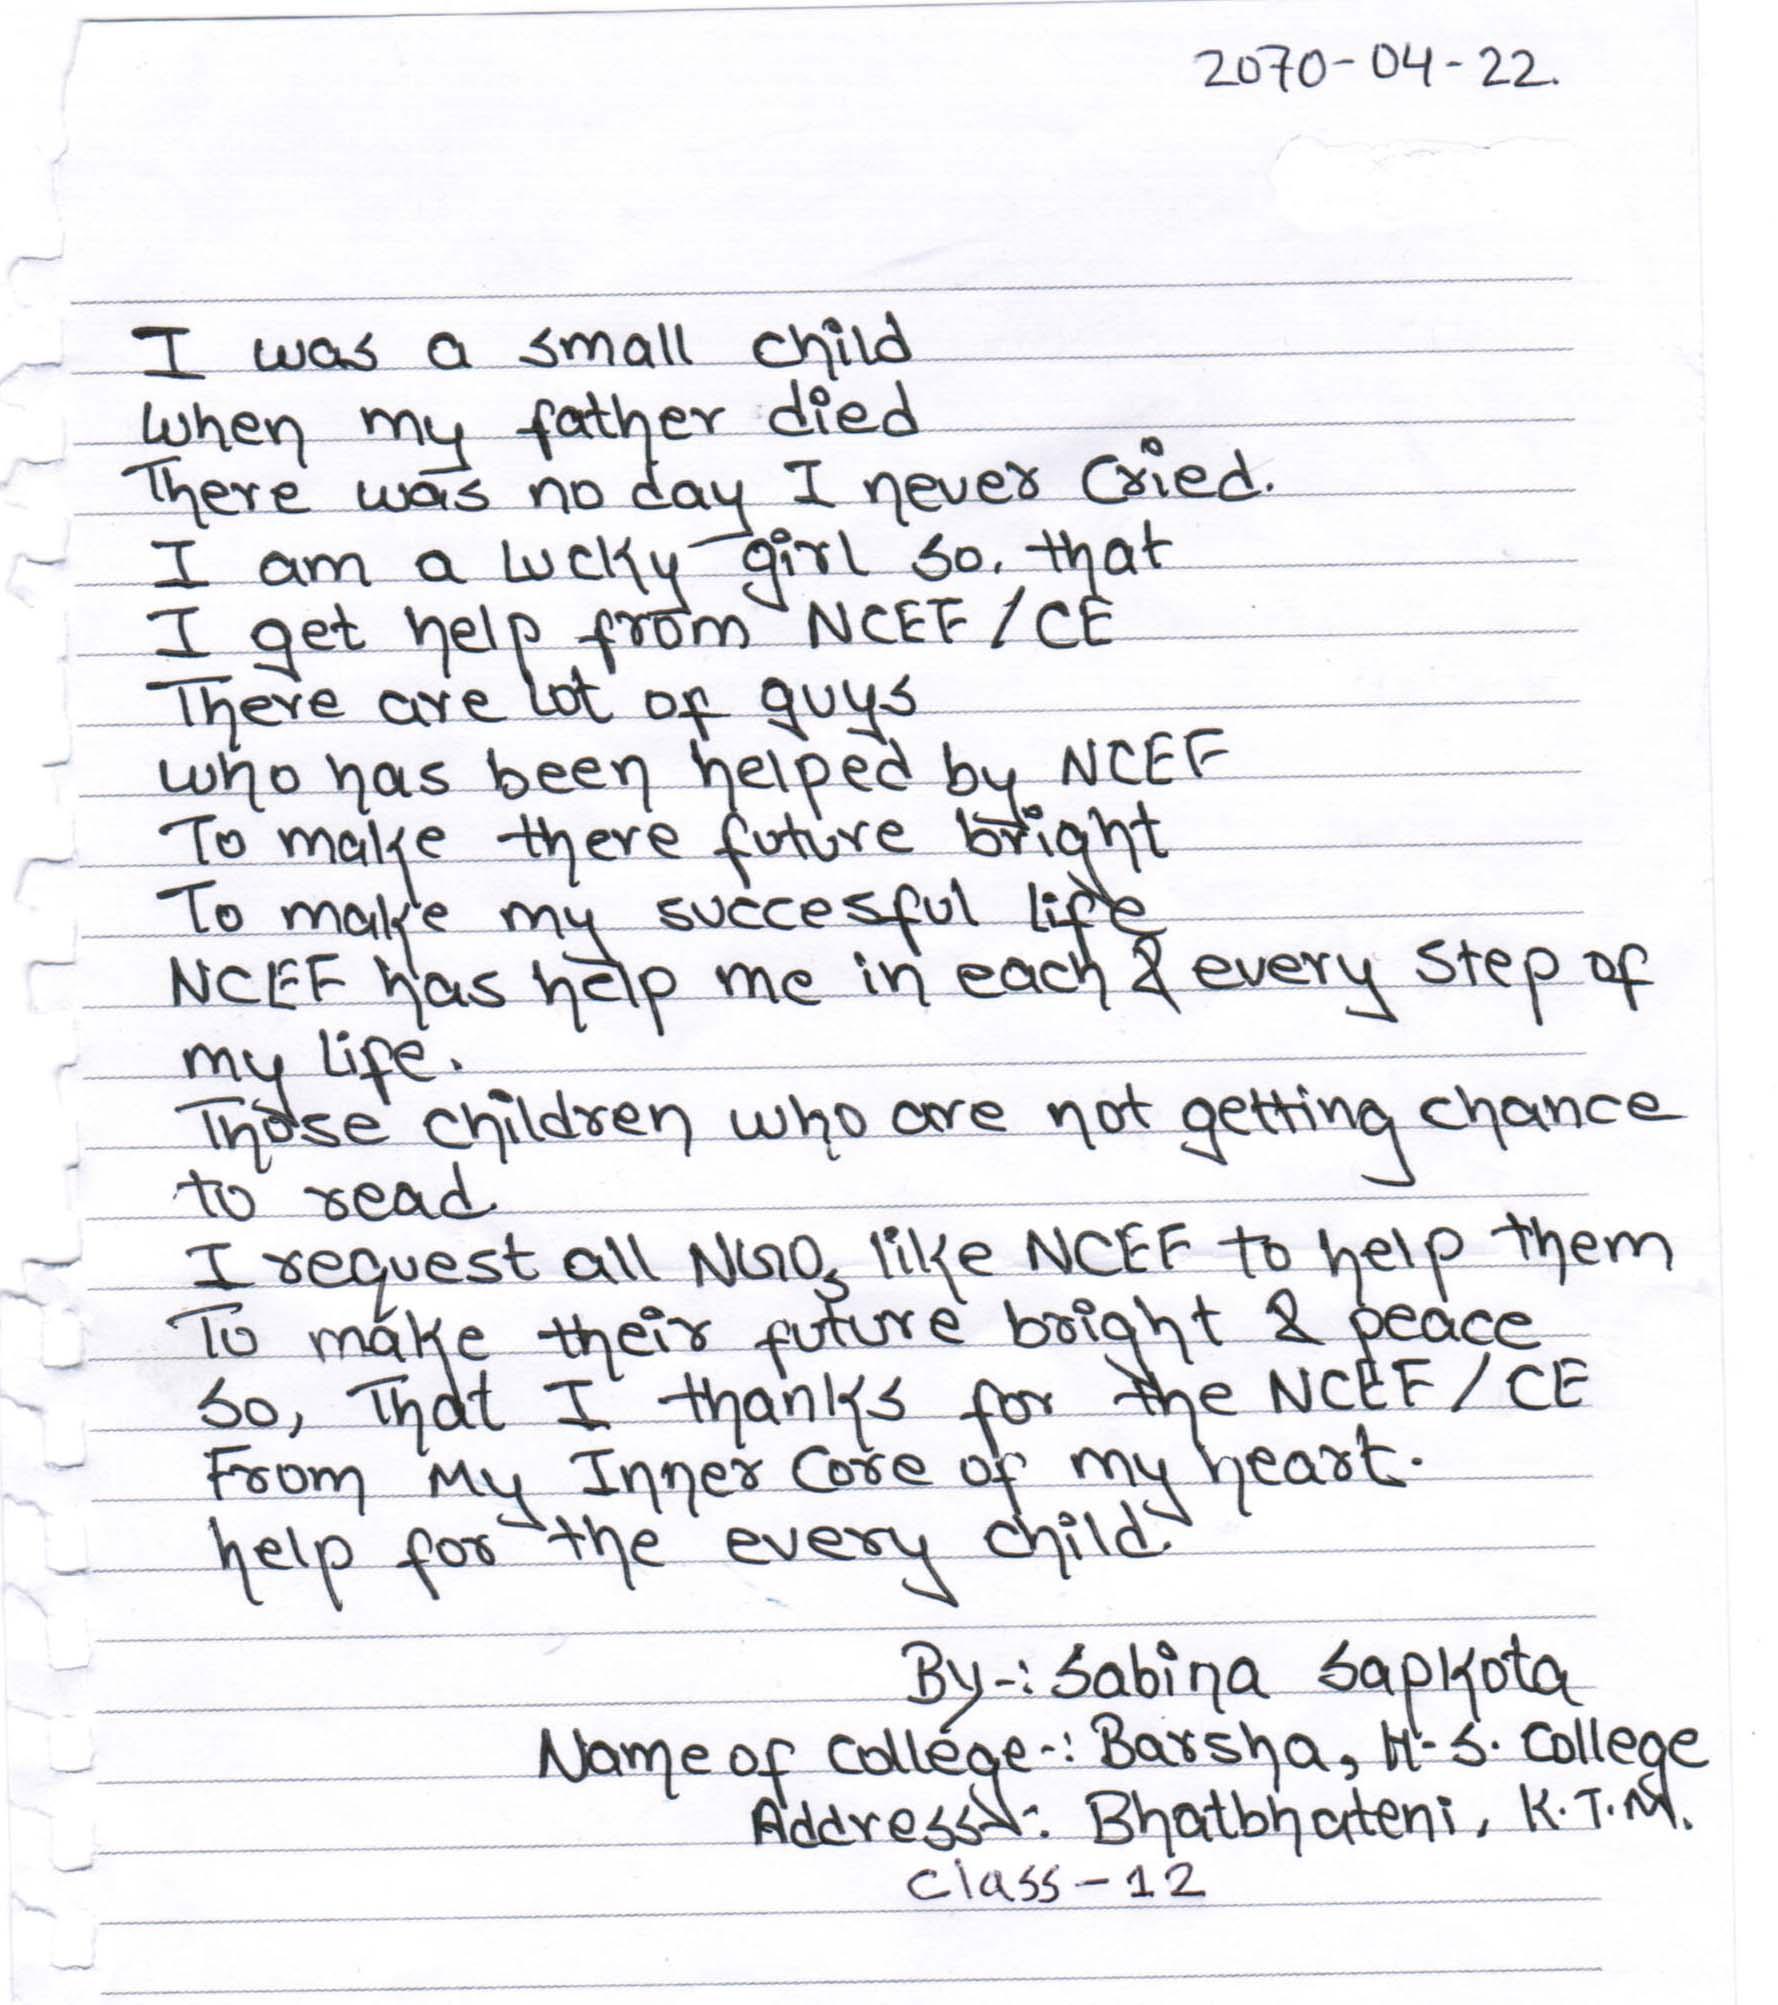 2070-04-22.
I was a small child
when my father died
There was no day I never cried.
I am a lucky girl so. that
I get help from NCEF/CE
There are lot of guys
who has been helped by NCEF
To make there future bright
To make my succesful life
NCEF has help me in each & every step of
my life.
Those children who are not getting chance
to read
I request all NGOs like NCEF to help them
To make their future bright & peace
so, That I thanks for the NCEF/CE
From My Inner Core of my heart.
help for the every child.
By-: Sabina Sapkota
Name of college-: Barsha, H-S. College
Address-: Bhatbhateni, K.T.M.
class-12